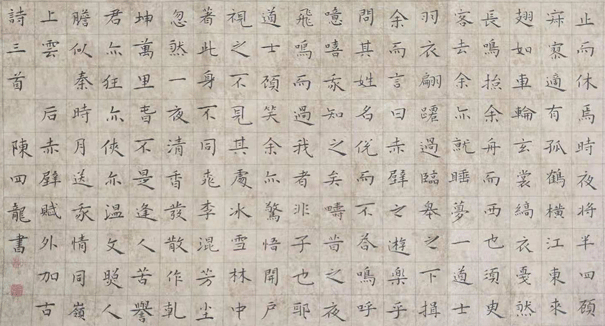 止而休焉時夜將半四顧
寂寥適有孤鶴橫江東來
翅如車輪玄裳縞衣戛然
長鳴掠余舟而西也須臾
客去余亦就睡夢一道士
羽衣翩躚過臨皋之下揖
余而言曰赤壁之遊樂乎
問其姓名俛而不答嗚呼
噫嘻我知之矣疇昔之夜
飛鳴而過我者非子也耶
道士顧笑余亦驚悟開戶
視之不見其處冰雪林中
著此身不同桃李混芳塵
忽然一夜清香發散作乾
坤萬里春不是逢人苦譽
君亦狂亦俠亦溫文照人
膽似秦時月送我情同嶺
上雲 后赤壁賦外加古
詩三首 陳四龍書